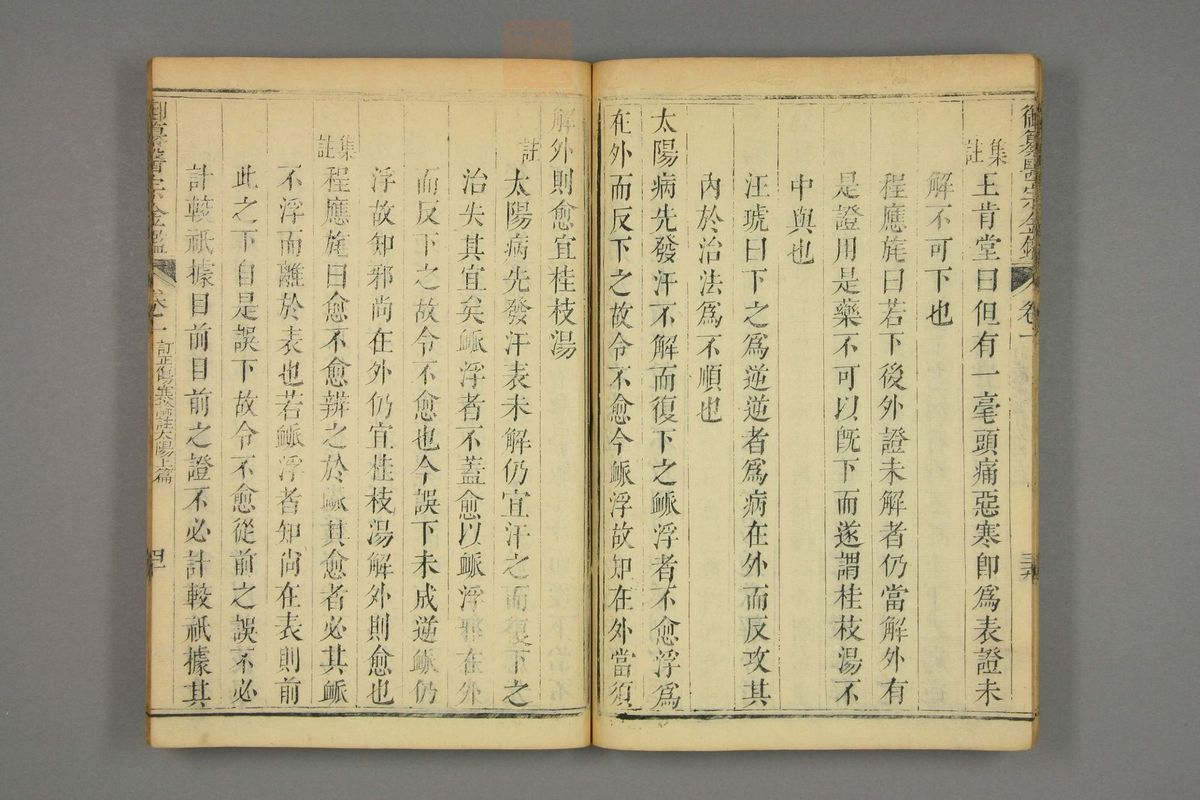 御纂醫宗金鑑 卷一 三九
集註 王肯堂曰但有一毫頭痛惡寒卽爲表證未
解不可下也
程應旄曰若下後外證未解者仍當解外有
是證用是藥不可以旣下而遂謂桂枝湯不
中與也
汪琥曰下之爲逆逆者爲病在外而反攻其
內於治法爲不順也
太陽病先發汗不解而復下之䘑浮者不愈浮爲
在外而反下之故令不愈今䘑浮故知在外當須
解外則愈宜桂枝湯
註 太陽病先發汗表未解仍宜汗之而復下之
治失其宜矣䘑浮者不蓋愈以䘑浮在外
而反下之故令不愈也今誤下未成逆䘑仍
浮故知邪尚在外仍宜桂枝湯解外則愈也
集註 程應旄曰愈不愈辨之於䘑其愈者必其䘑
不浮而離於表也若䘑浮者知尚在表則前
此之下自是誤下故令不愈從前之誤不必
計較祇據目前目前之證不必計較祇據其
御纂醫宗金鑑 卷一 訂正傷寒論註太陽上篇 四十